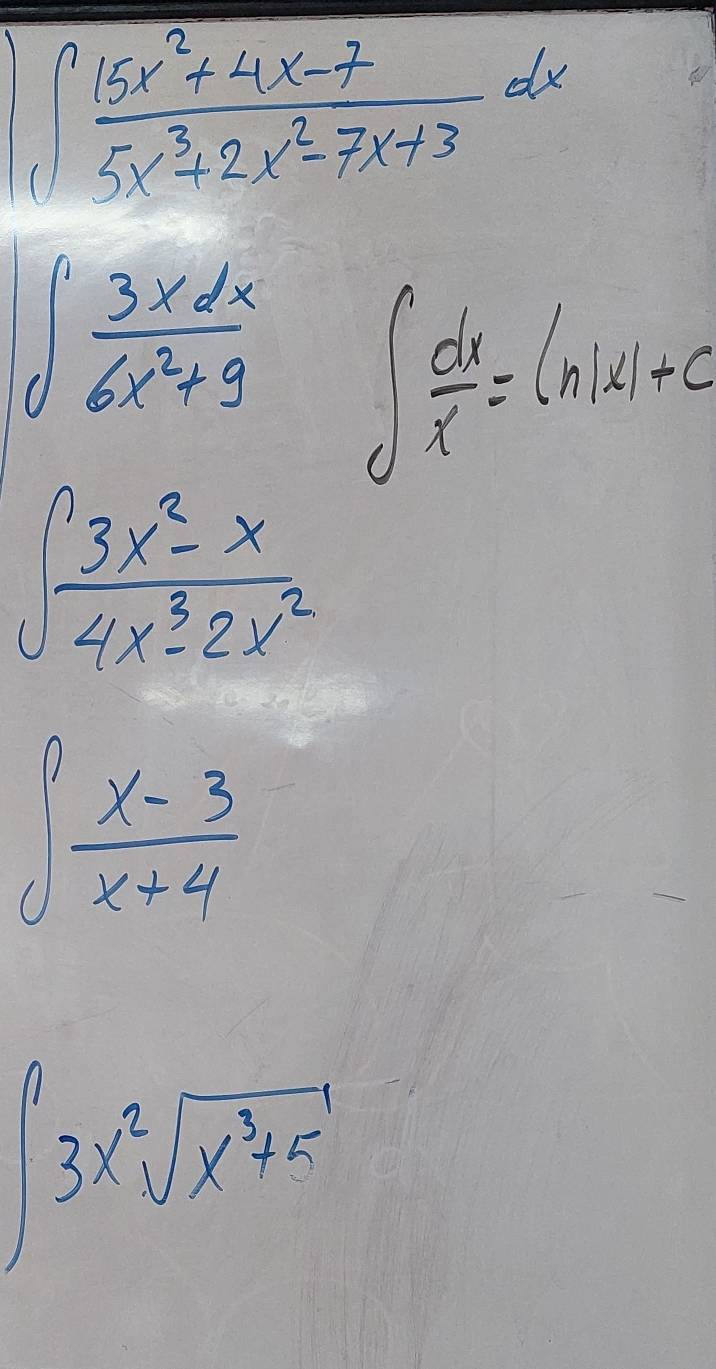 ∫ (15x² + 4x - 7)/(5x³ + 2x² - 7x + 3) dx
∫ 3x dx/(6x² + 9)
∫ dx/x = ln|x| + C
∫ (3x² - x)/(4x³ - 2x²)
∫ (x - 3)/(x + 4)
∫ 3x² √(x³ + 5)